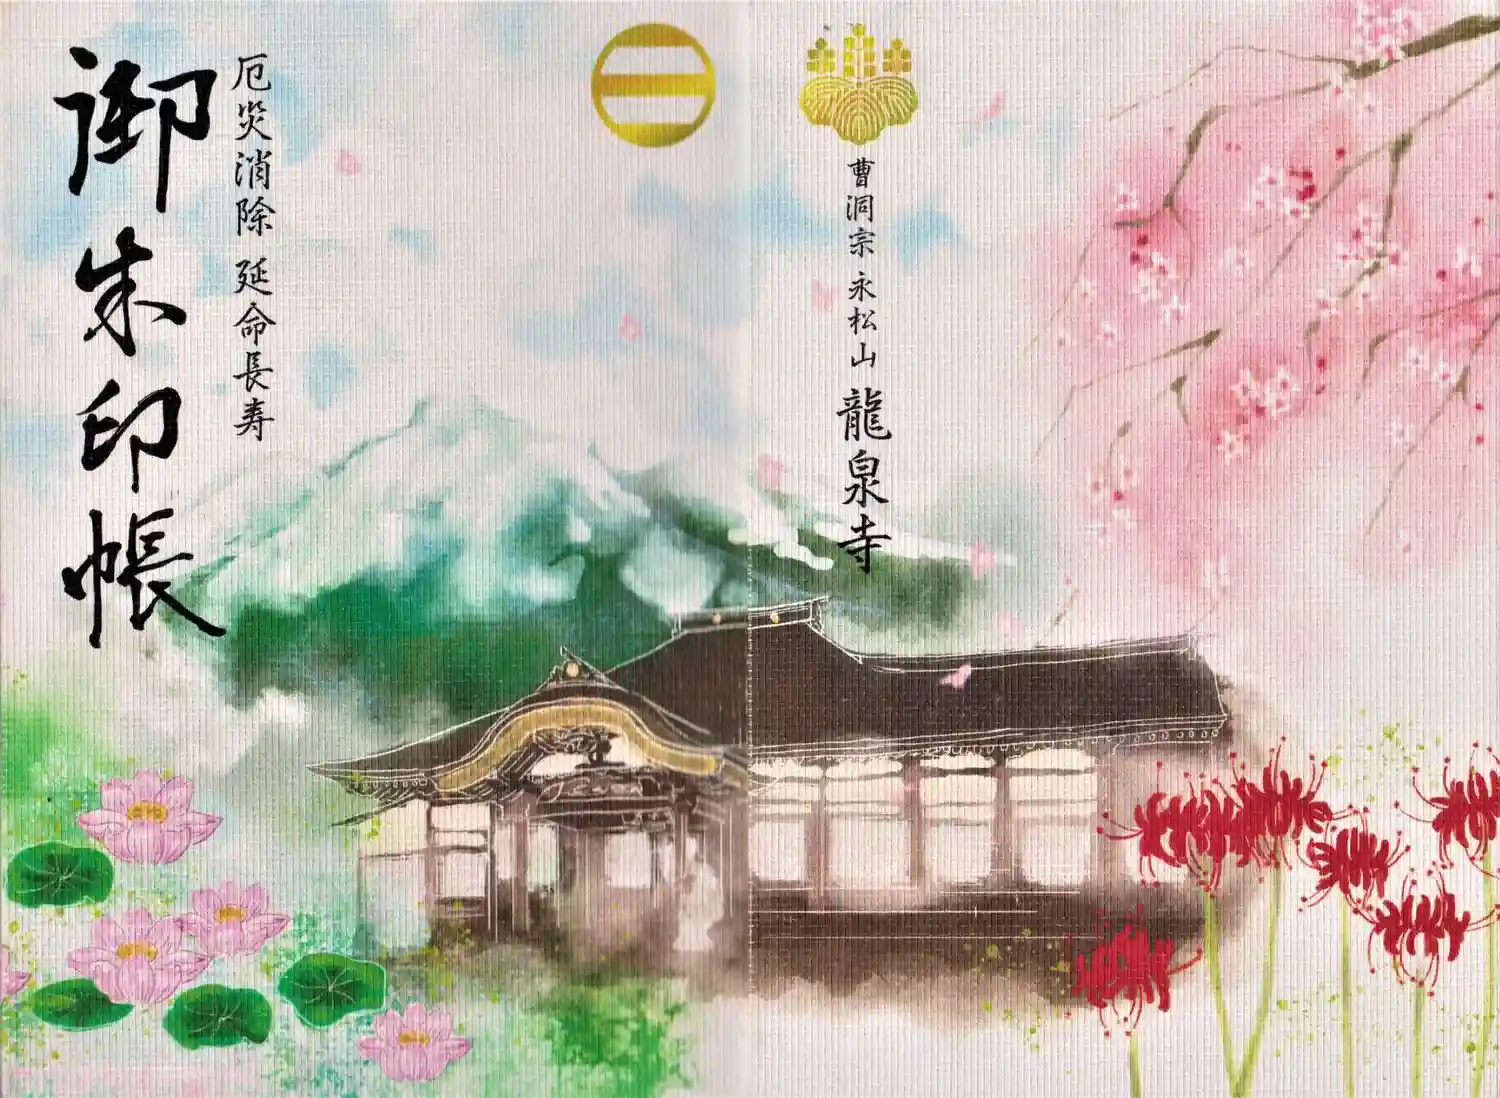 曹洞宗 永松山 龍泉寺
厄災消除 延命長寿
御朱印帳